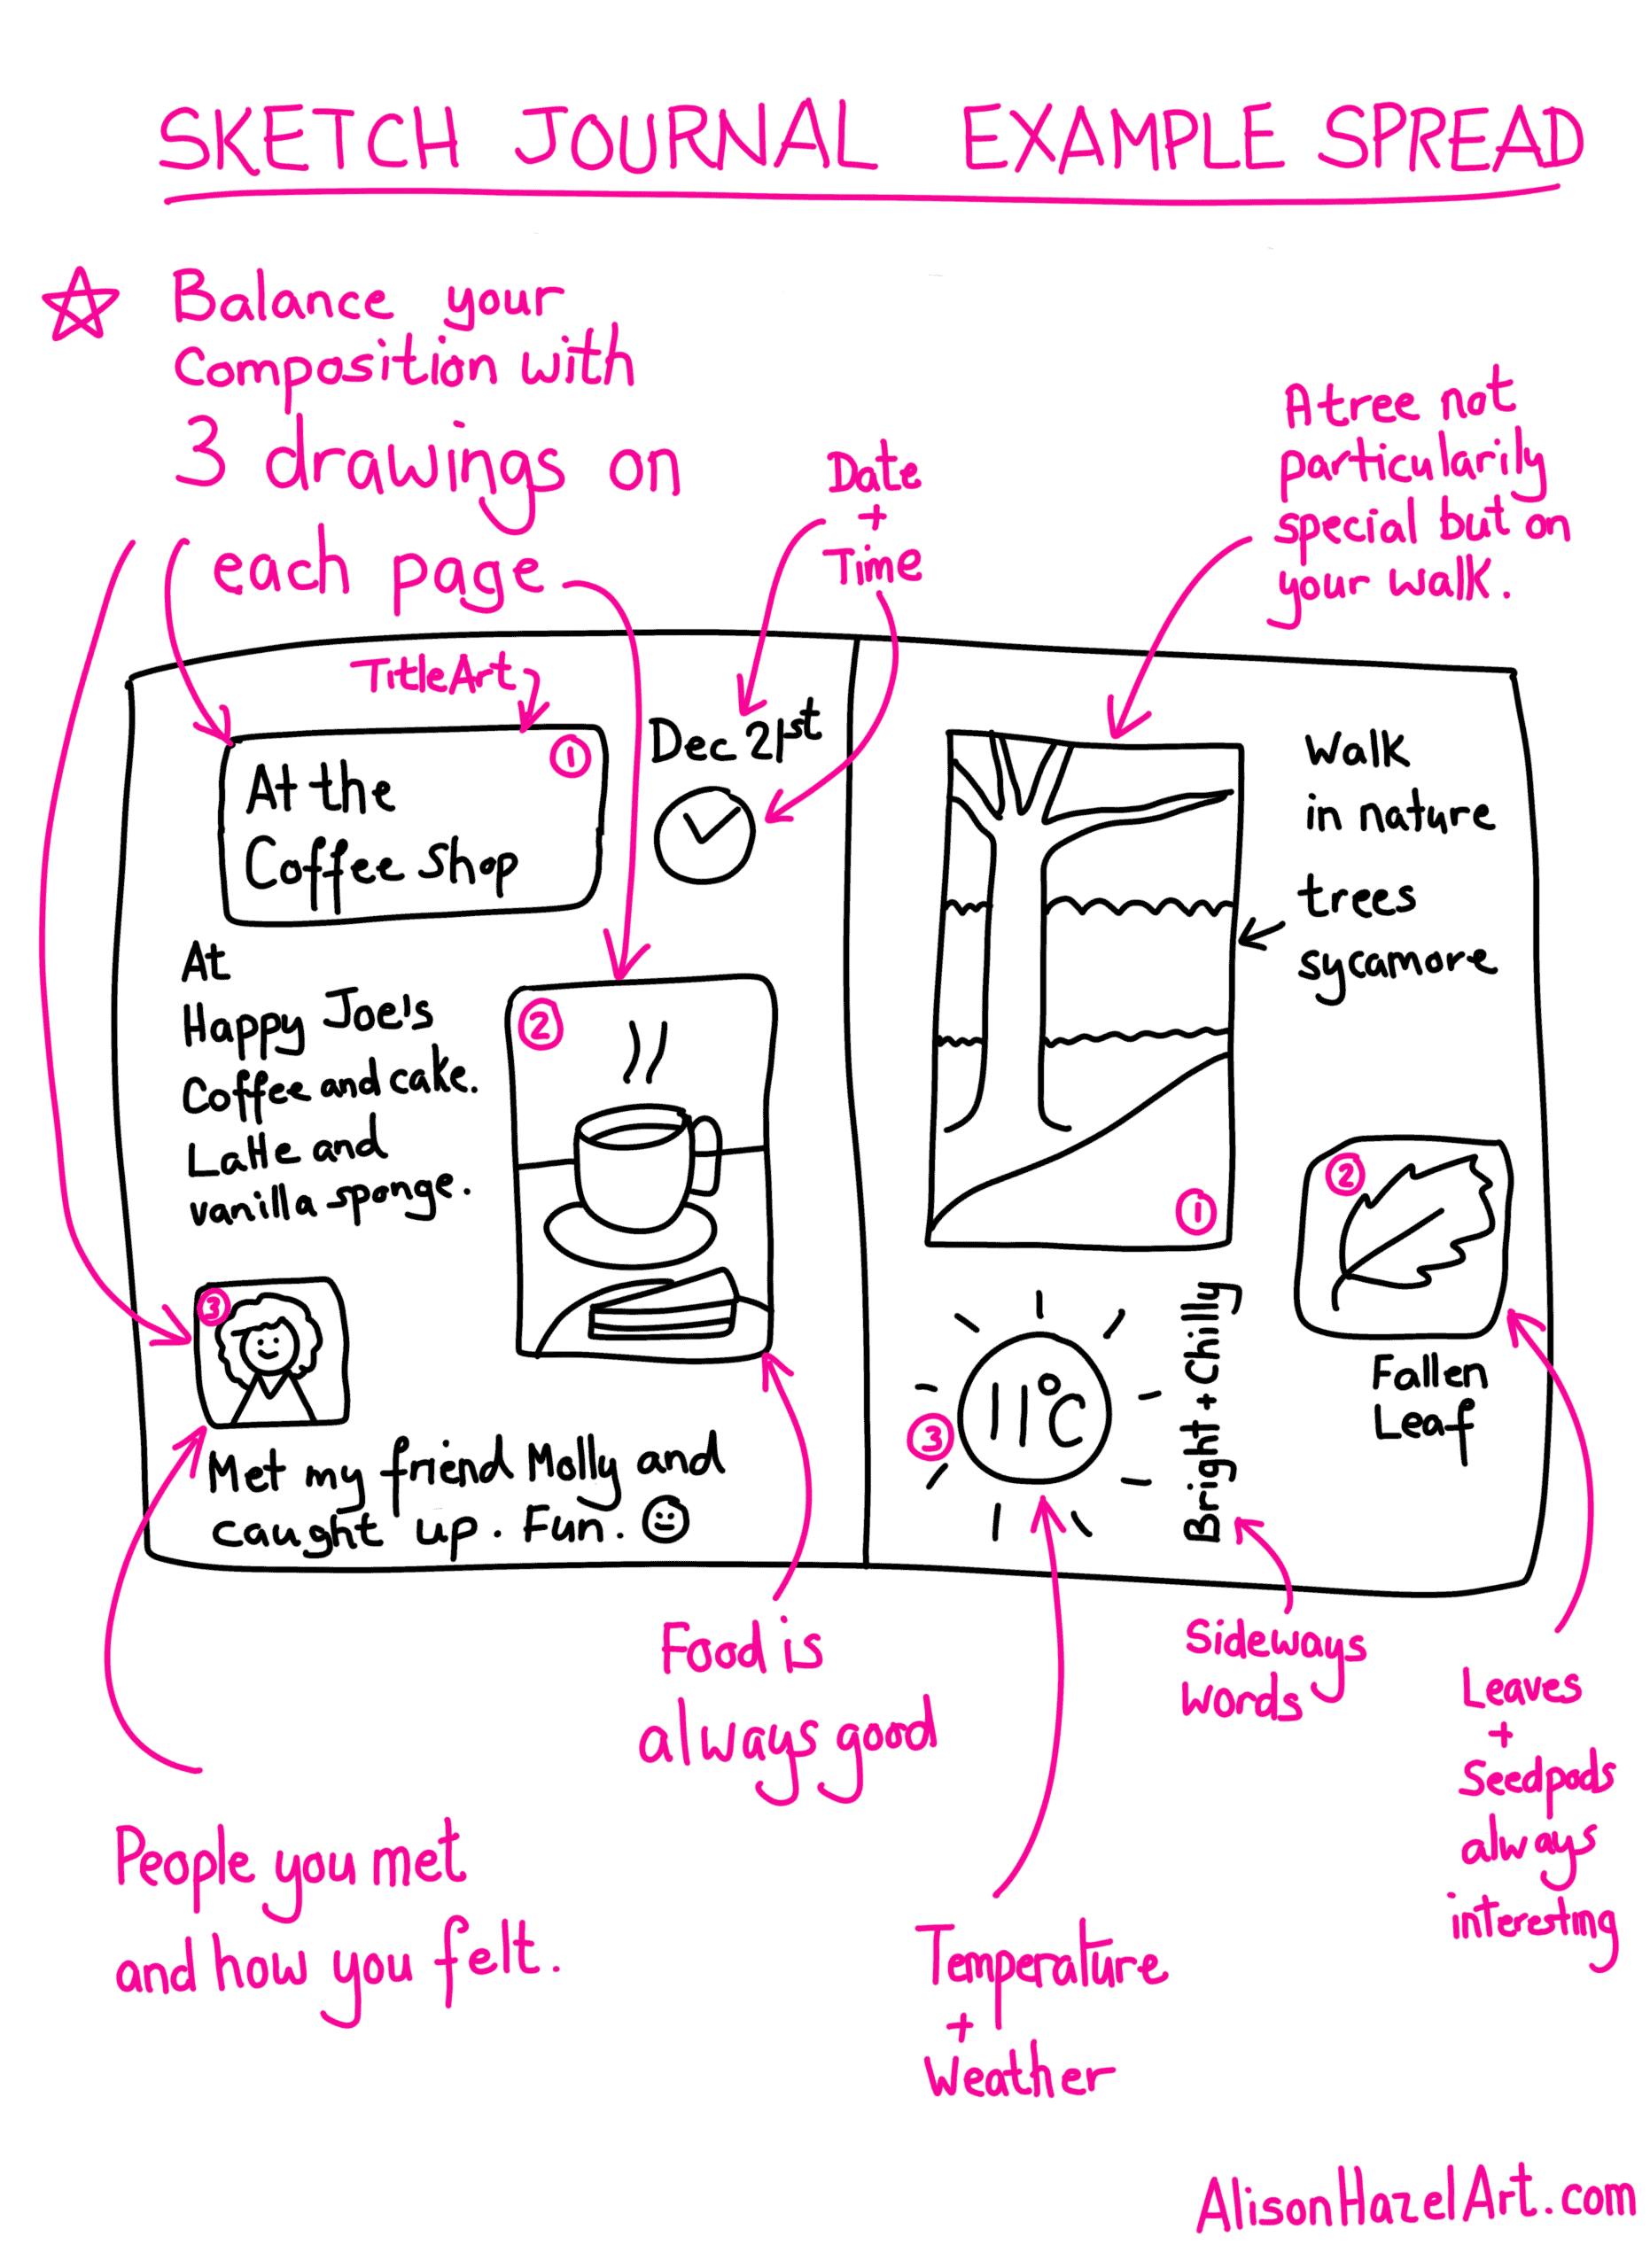 SKETCH JOURNAL EXAMPLE SPREAD
Balance your
Composition with
3 drawings on
each page
Date
+
Time
A tree not
particularily
special but on
your walk.
Title Art
1
At the
Coffee Shop
Dec 21st
At
Happy Joe's
Coffee and cake.
Latte and
vanilla sponge.
2
3
Met my friend Molly and
caught up. Fun.
Walk
in nature
trees
sycamore
1
2
Fallen
Leaf
3
11°C
Bright + Chilly
People you met
and how you felt.
Food is
always good
Temperature
+
Weather
Sideways
Words
Leaves
+
Seedpods
always
interesting
AlisonHazelArt.com